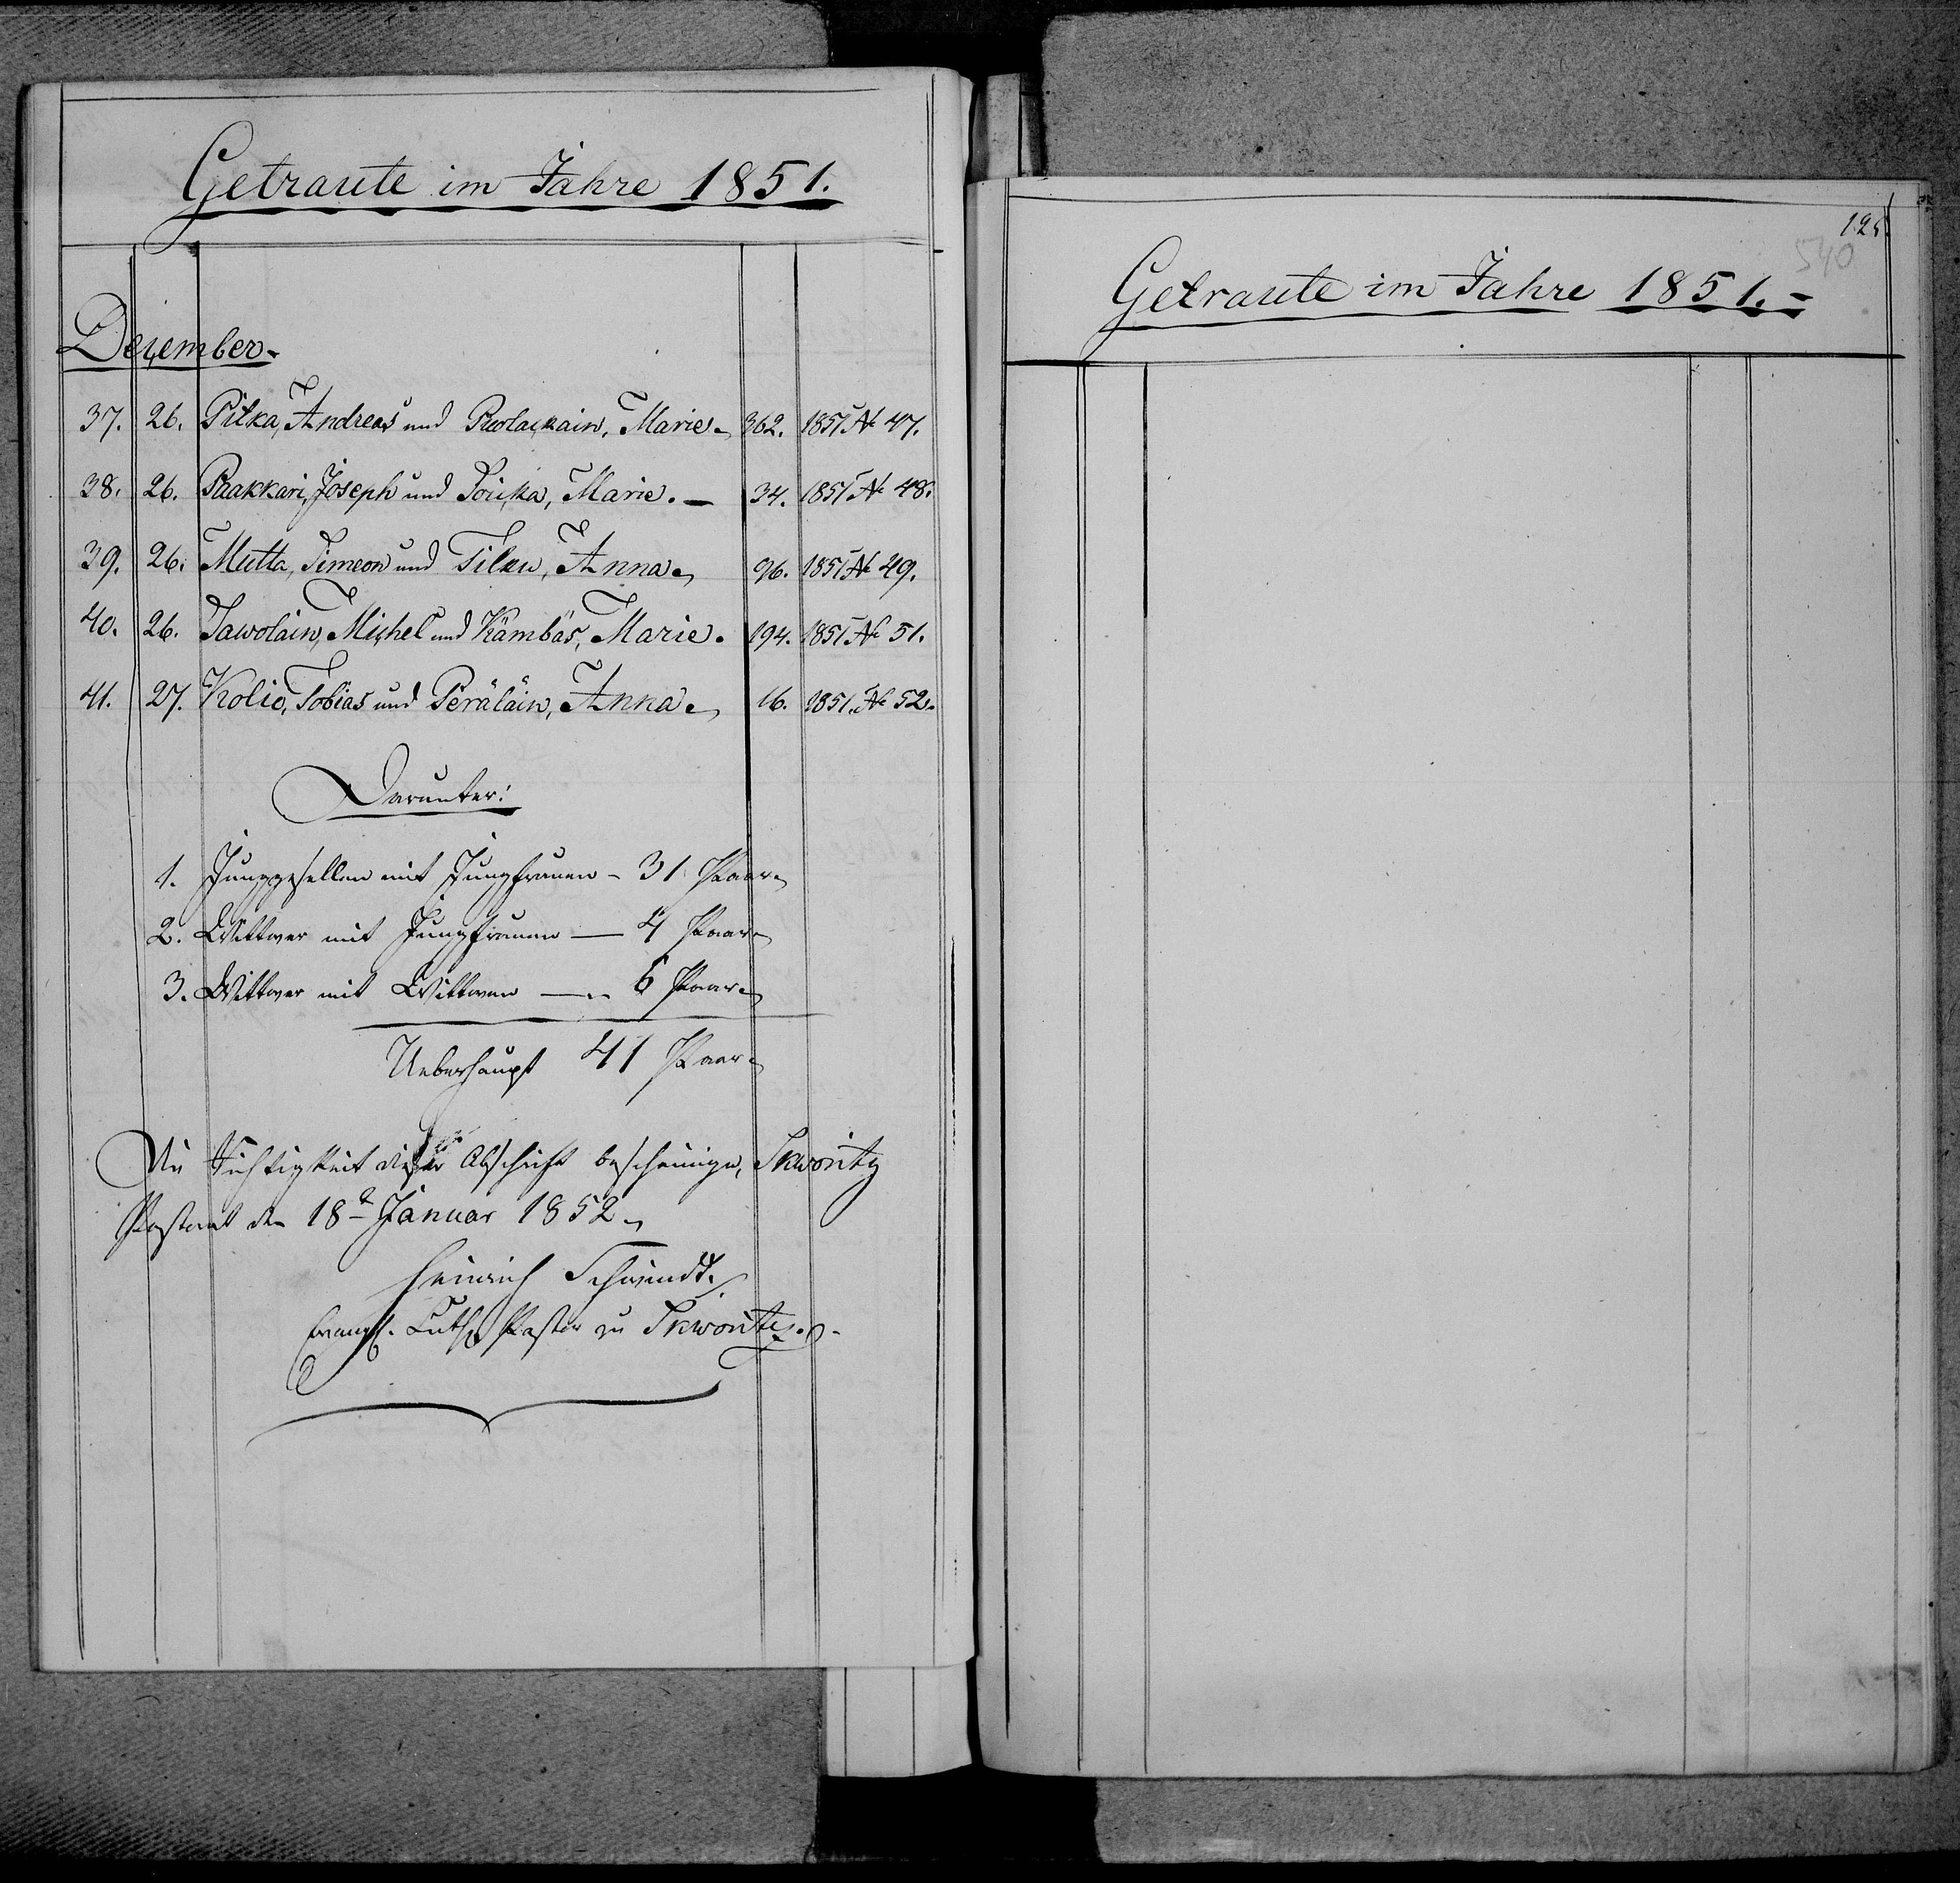 Getraute im Jahre 1851.
Dezember
37. 26. Pitka, Andreas und Marie. 362. 1851 № 47.
38. 26. Paakkari, Joseph und Marie. — 34. 1851 № 48.
39. 26. Mutta, Simeon und Tilku, Anna. 96. 1851 № 49.
40. 26. Sawolain, Michel und Kämbäs, Marie. 194. 1851 № 51.
41. 27. Kolio, Tobias und Peräläin, Anna. 16. 1851. № 52.
Darunter:
1. Junggesellen mit Jungfrauen - 31 Paar.
2. Wittwer mit Jungfrauen — 4 Paar.
3. Wittwer mit Wittwen — 6 Paar.
Ueberhaupt 41 Paar.
Die Richtigkeit dieser Abschrift bescheinige, Skworitz
Pastorat den 18 Januar 1852.
Heinrich Schwindt.
Evangl. Luth. Pastor zu Skworitz.
540
Getraute im Jahre 1851. -